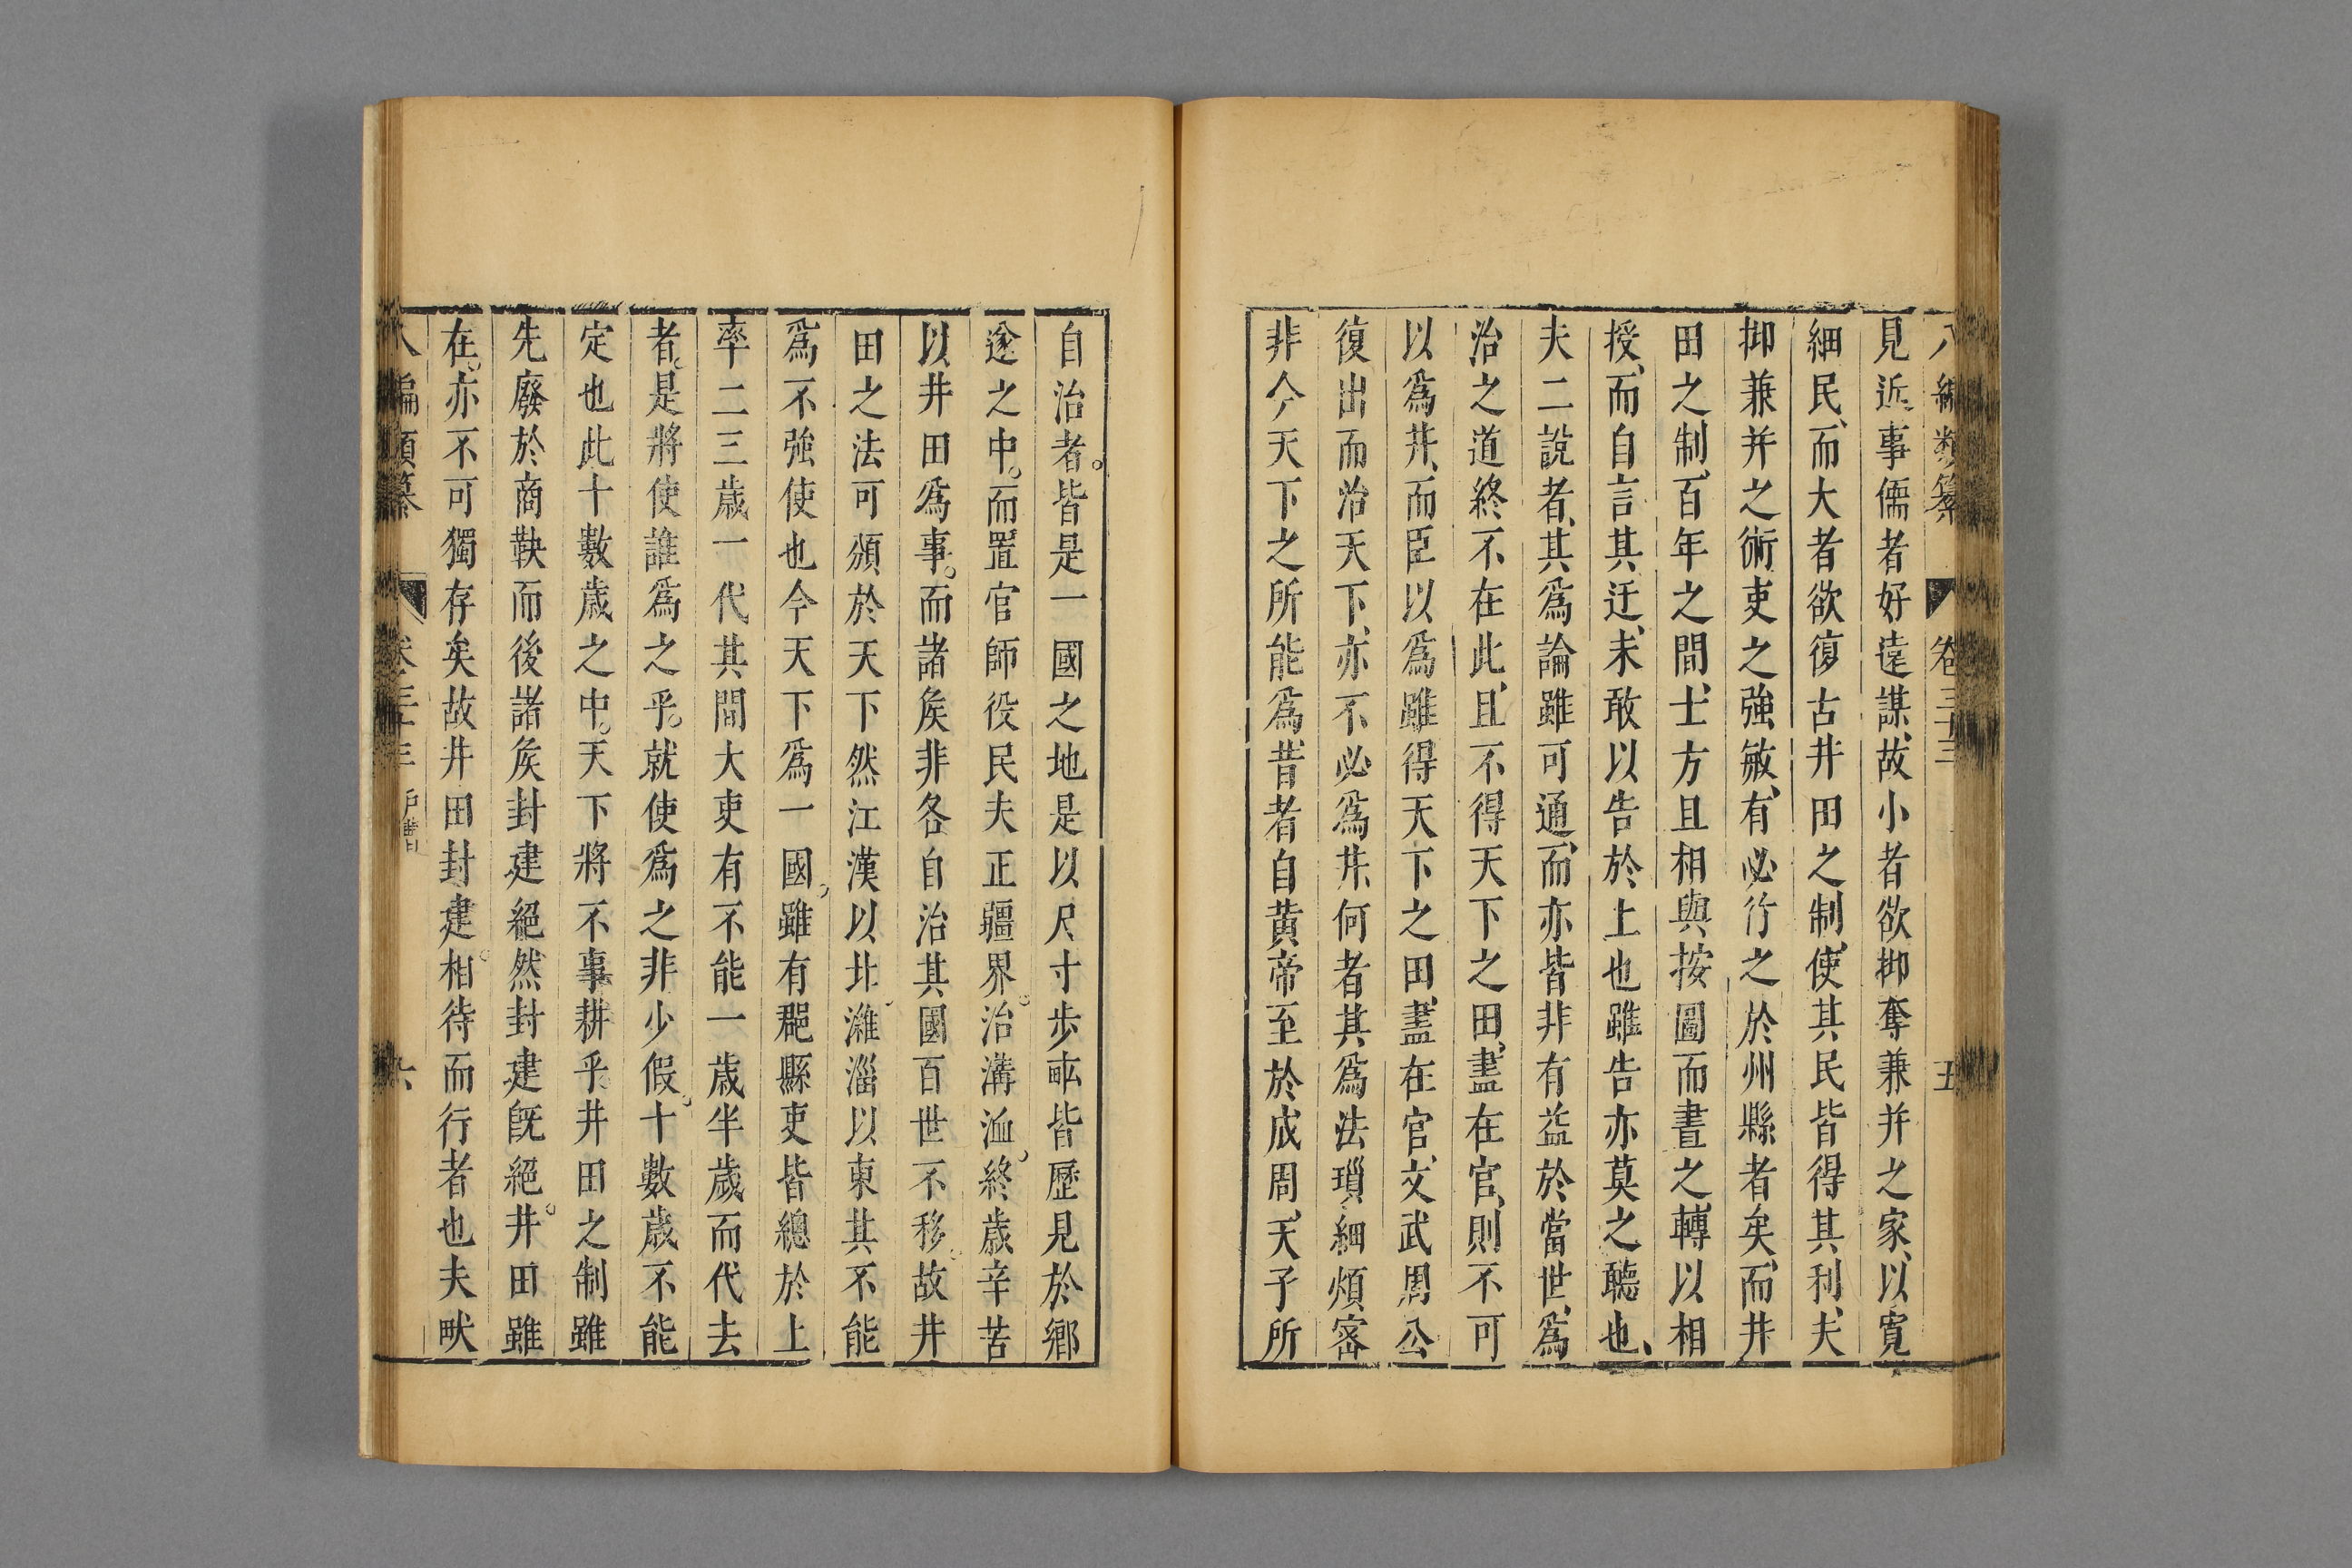 八編類纂 卷三十三 五
見近事儒者好遠謀、故小者欲抑奪兼并之家、以寬
細民、而大者欲復古井田之制、使其民皆得其利、夫
抑兼并之術吏之強敏、有必行之於州縣者矣、而井
田之制、百年之間、士方且相與按圖而畫之、轉以相
授、而自言其迂、未敢以告於上也雖告亦莫之聽也、
夫二說者、其爲論雖可通、而亦皆非有益於當世、爲
治之道終不在此、且不得天下之田、盡在官、則不可
以爲井、而臣以爲雖得天下之田、盡在官、文武周公
復出而治天下、亦不必爲井、何者其爲法瑣細煩密
非今天下之所能爲、昔者自黃帝至於成周、天子所
自治者。皆是一國之地是以尺寸步畝皆歷見於鄉
遂之中。而置官師役民夫正疆界。治溝洫。終歲辛苦
以井田爲事。而諸侯非各自治其國百世不移。故井
田之法可頒於天下然江漢以北。濰淄以東其不能
爲不強使也今天下爲一國。雖有郡縣吏皆總於上
率二三歲一代其間大吏有不能一歲半歲而代去
者。是將使誰爲之乎。就使爲之非少假。十數歲不能
定也此十數歲之中。天下將不事耕乎。井田之制雖
先廢於商鞅而後諸侯封建絕然封建旣絕。井田雖
在。亦不可獨存矣故井田封建。相待而行者也夫畎
八編類纂 卷三十三 戶曹 六